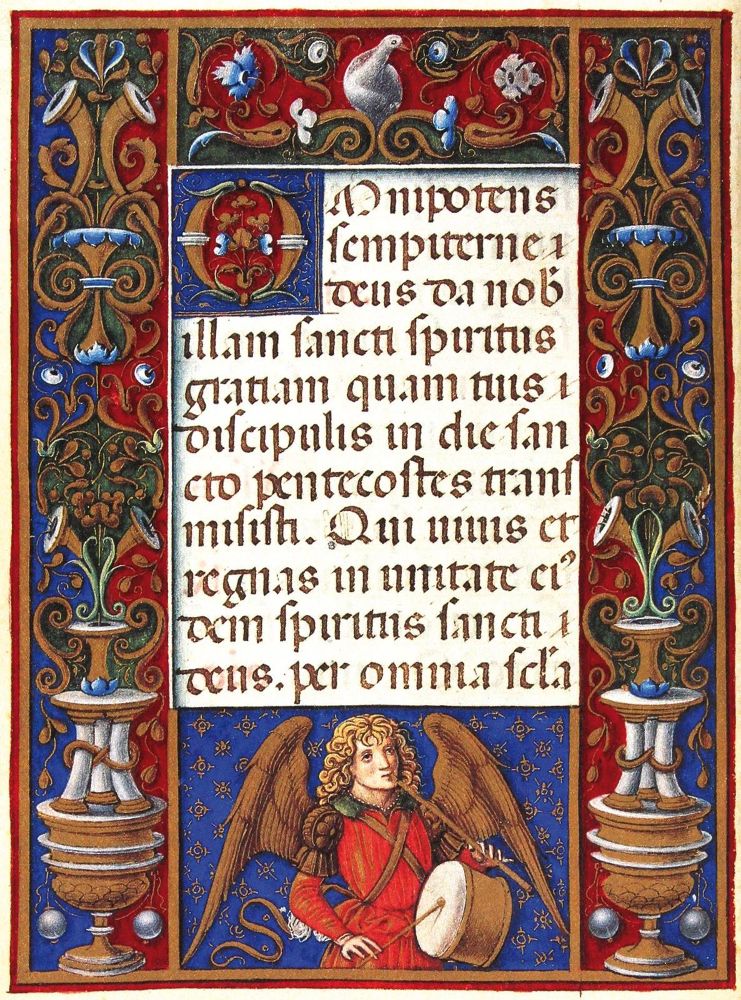 OMnipotens
sempiterne
deus da nob̃
illam sancti spiritus
gratiam quam tuis
discipulis in die san
cto pentecostes trans
misisti. Qui uiuis et
regnas in unitate eiꝰ
dem spiritus sancti
deus. per omnia scl̃a